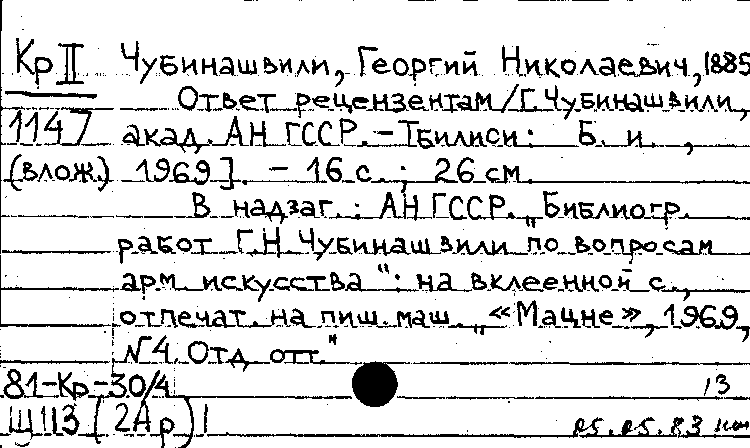 Кр II Чубинашвили, Георгий Николаевич, 1885
Ответ рецензентам / Г. Чубинашвили,
1147 акад. АН ГССР. – Тбилиси : Б. и. ,
(влож.) 1969]. – 16 с. ; 26 см.
В надзаг. : АН ГССР. „Библиогр.
работ Г.Н. Чубинашвили по вопросам
арм. искусства“: на вклеенной с.,
отпечат. на пиш. маш. „«Мацне», 1969,
№4. Отд. отт."
81-Кр-30/4 13
Щ113(2Ар)1 05.05.83